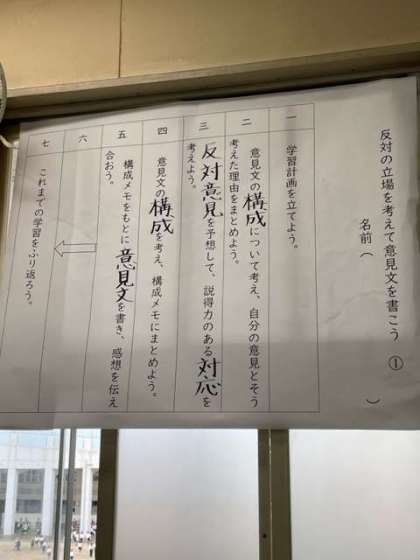 反対の立場を考えて意見文を書こう ①
名前( )
一 学習計画を立てよう。
二 意見文の構成について考え、自分の意見とそう
考えた理由をまとめよう。
三 反対意見を予想して、説得力のある対応を
考えよう。
四 意見文の構成を考え、構成メモにまとめよう。
五 構成メモをもとに意見文を書き、感想を伝え
合おう。
六
七 これまでの学習をふり返ろう。